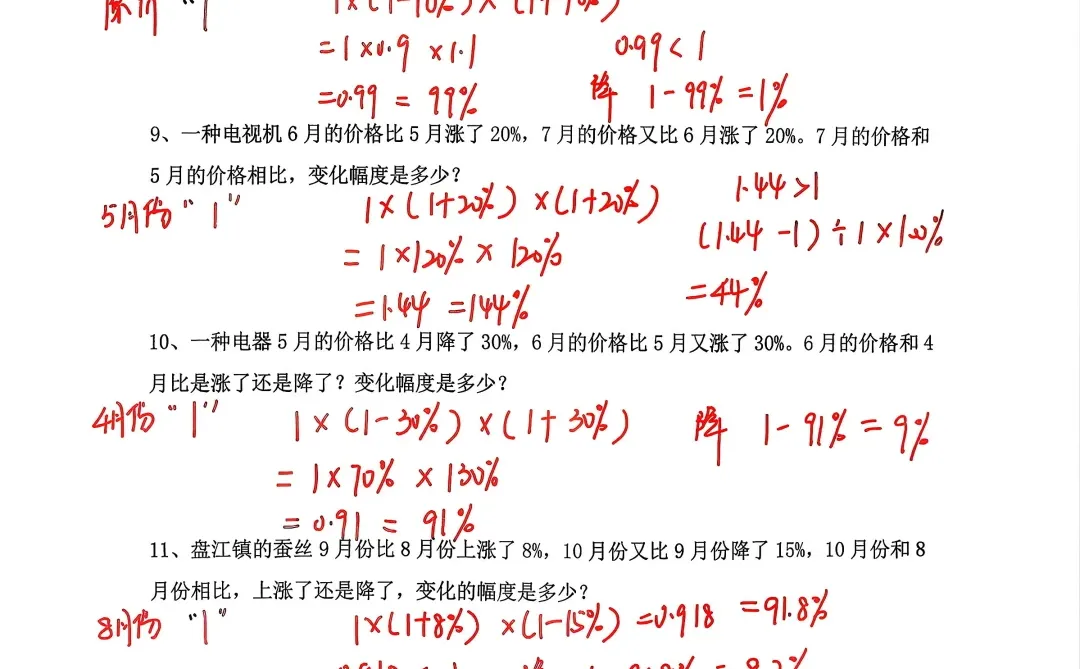 原价 "1" 1×(1-10%)×(1+10%)
=1×0.9×1.1 0.99<1
=0.99=99% 降 1-99%=1%
9、一种电视机6月的价格比5月涨了20%，7月的价格又比6月涨了20%。7月的价格和
5月的价格相比，变化幅度是多少？
5月份"1" 1×(1+20%)×(1+20%) 1.44>1
=1×120%×120% (1.44-1)÷1×100%
=1.44=144% =44%
10、一种电器5月的价格比4月降了30%，6月的价格比5月又涨了30%。6月的价格和4
月比是涨了还是降了？变化幅度是多少？
4月份"1" 1×(1-30%)×(1+30%) 降 1-91%=9%
=1×70%×130%
=0.91=91%
11、盘江镇的蚕丝9月份比8月份上涨了8%，10月份又比9月份降了15%，10月份和8
月份相比，上涨了还是降了，变化的幅度是多少？
8月份"1" 1×(1+8%)×(1-15%)=0.918=91.8%